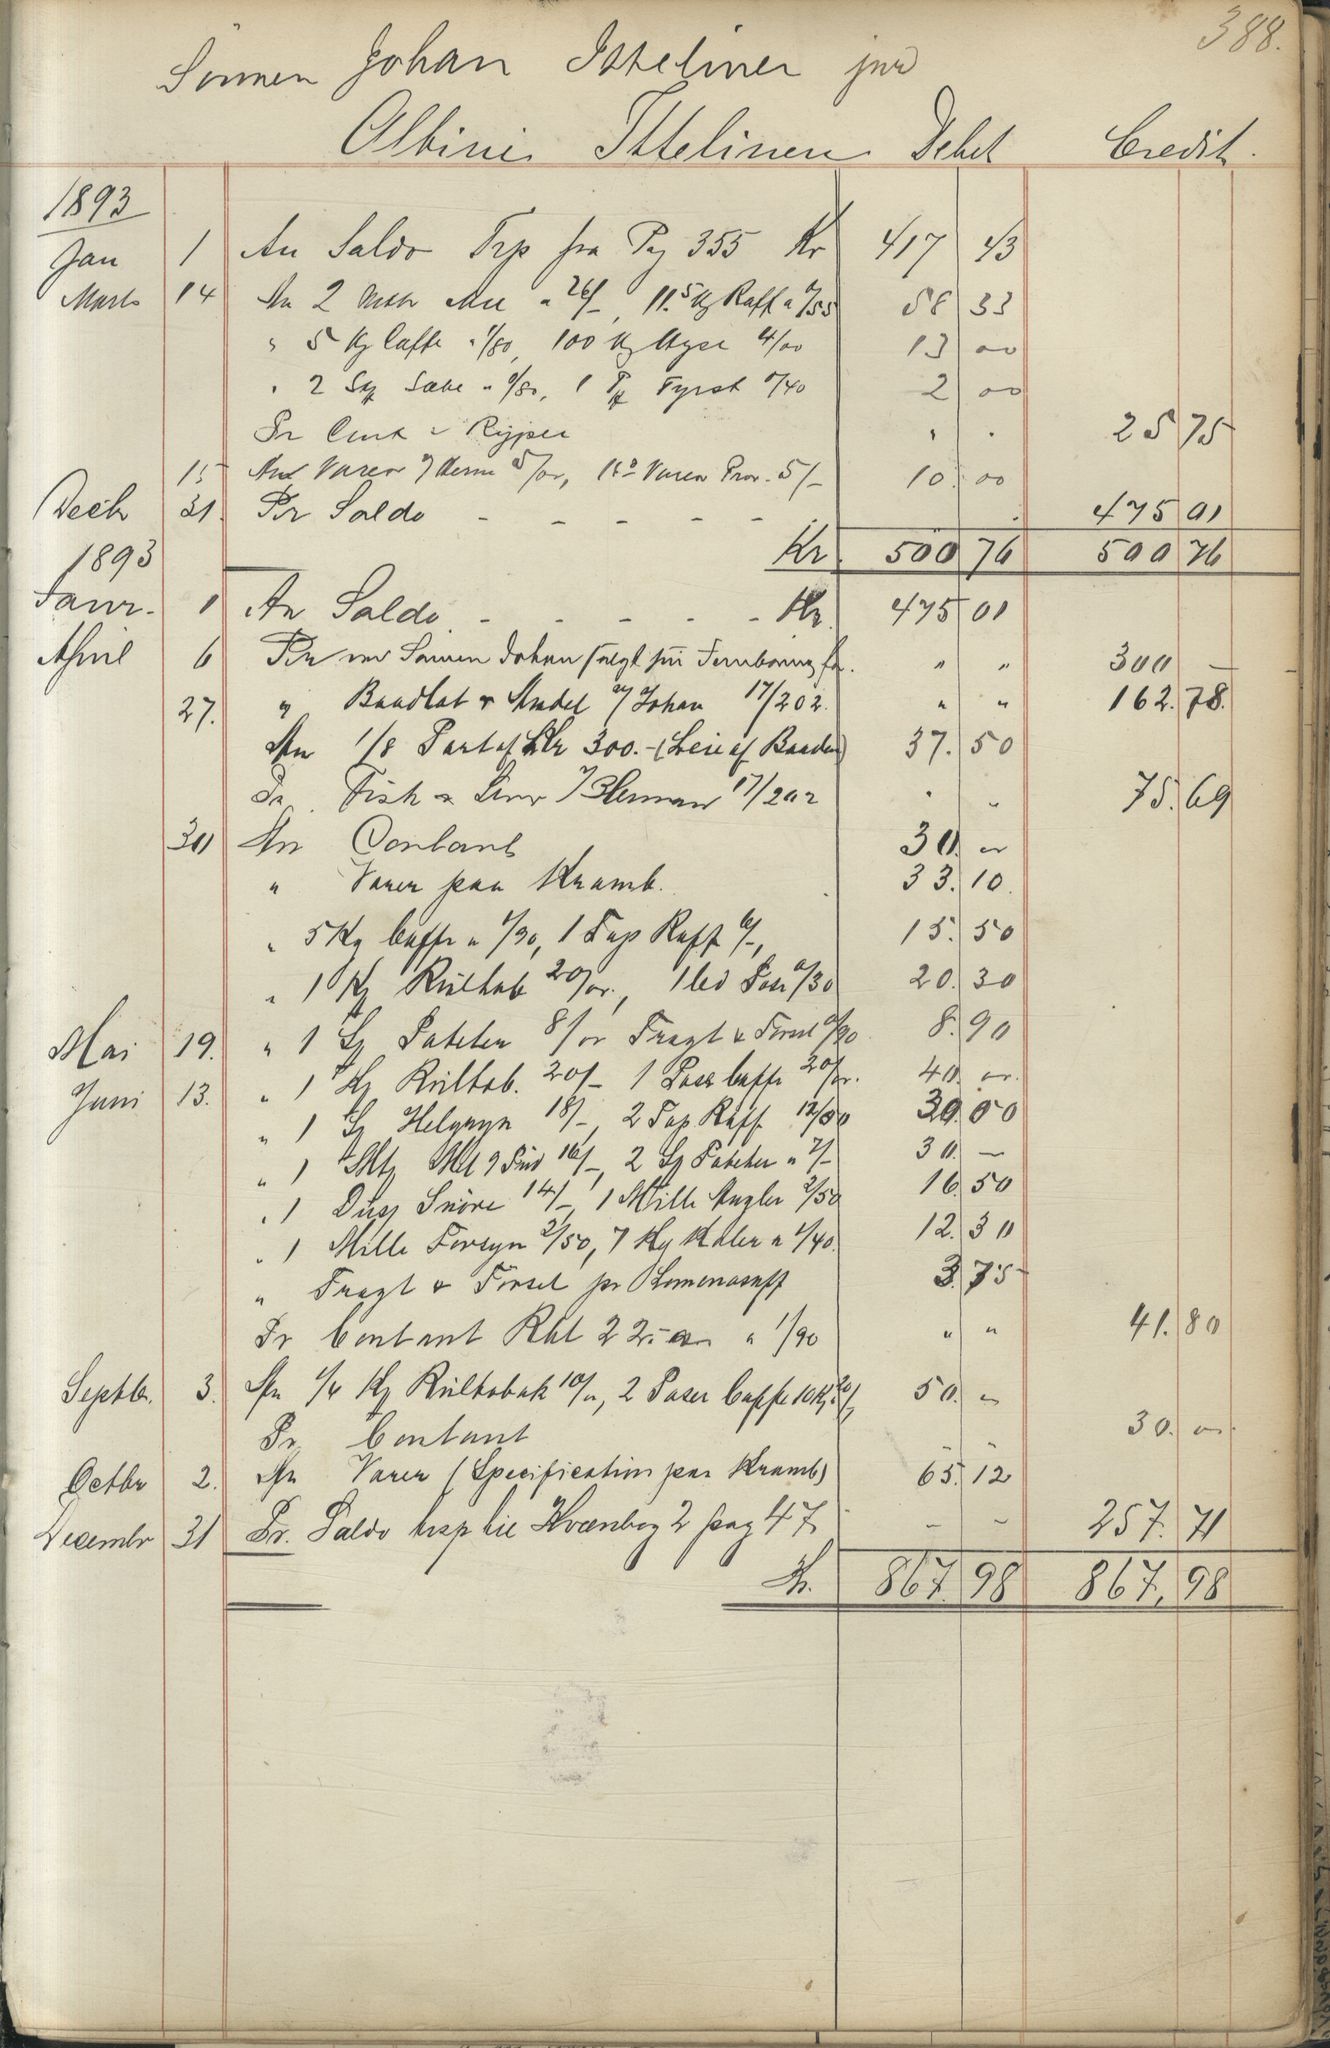 388.
Sönnen Johan Itteliner jnr
Albinis Ittelinen Debet Credit.
1893
Jan 1 An Saldo Trp fra Pg 355 Kr 417 43
Marts 14 An 2 Mtr Mel a 26/-, 11.5 Kg Raff a 0/55 58 33
" 5 Kg Caffe a 1/80, 100 Kg Hyse 4/00 13 00
" 2 Sk Sæbe a 0/80, 1 P Fyrst 0/40 2 00
Pr Cont & Ryper " " 25 75
15 An Varer 5/00, Varer Prov. 5/- 10.00
Decb 31. Pr Saldo - - - - - 475 01
Kr 500 76 500 76
1893
Janr. 1 An Saldo. - - - - - Kr. 475 01
April 6 Pr Sönnen Johan solgt sin Fembøring for. " " 300 -
27. " Baadlot & Andel Johan 17/202. " " 162.78.
An 1/8 Part af Kr 300.- (Leie af Baaden) 37.50
Pr. Fisk & Herman 17/202 " " 75.69
30 An Contant 30. "
" Varer paa Kramb. 33.10.
" 5 Kg Caffe a 1/90, 1 Tap Raff 6/-, 15.50
" 1 Kg Rultob 20/or., 0/30 20.30
Mai 19. " 1 Sk Poteter 8/or Fragt & Försel 0/90 8.90
Juni 13. " 1 Kg Rultob. 20/- 1 Pose Caffe 20/or. 40. or.
" 1 Sk Helgryn 18/-, 2 Top Raff 12/00 30.00
" 1 Mtr Mel 16/-, 2 Sk Poteter a 7/- 30. -
" 1 Dus Snöre 14/-, 1 Mille Angler 2/50 16.50
" 1 Mille Forsyn 2/50, 7 Kg Kaler a 1/40. 12.30
" Fragt & Försel pr 3.75
Pr Contant Rbl 22.- a 1/90 " " 41.80
Septbr. 3. An 1/4 Kg Rultobak 10/-, 2 Poser Caffe 10 Kg 20/, 50. -
Pr Contant 30. or.
Octbr 2. An Varer (Specification paa Kramb) 65.12
Decembr 31 Pr. Saldo trsp til Kvænbog 2 pag 47 - - 257.71
Kr. 867.98 867,98